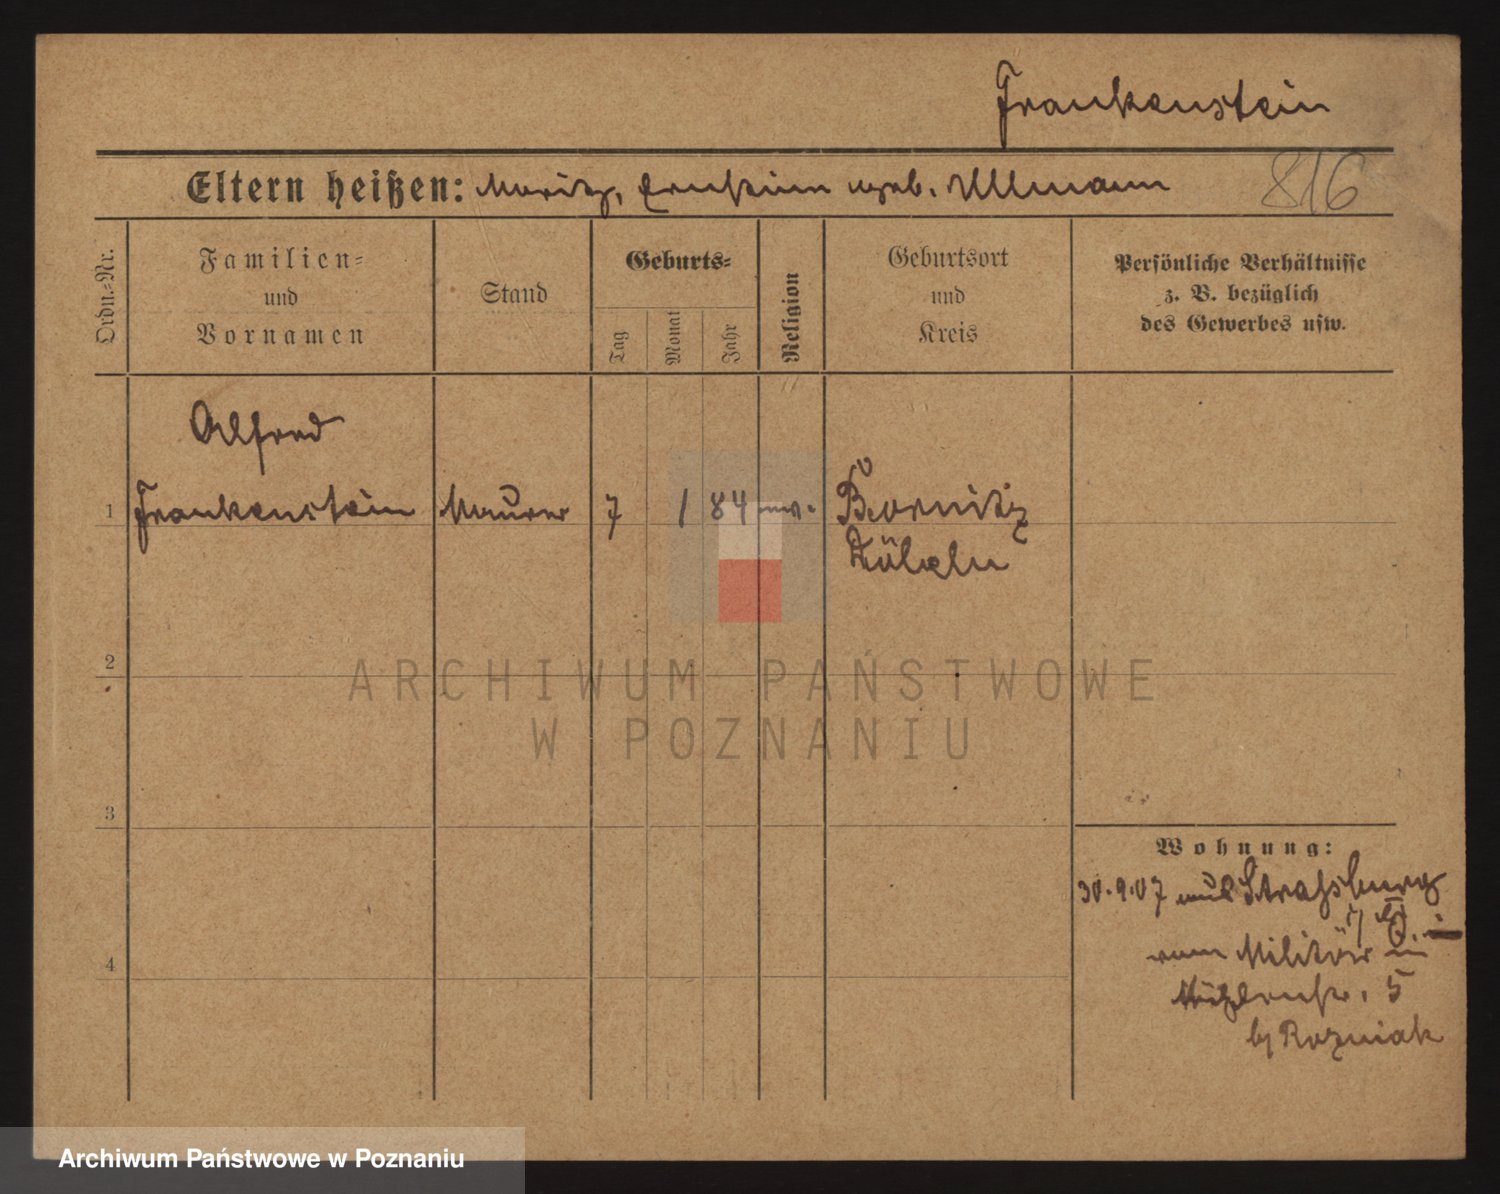 Frankenstein
Eltern heißen: Moritz, Ernestine geb. Ullmann
816
Ordn.-Nr.
Familien-
und
Vornamen
Stand
Geburts-
Tag
Monat
Jahr
Religion
Geburtsort
und
Kreis
Persönliche Verhältnisse
z. B. bezüglich
des Gewerbes usw.
Alfred
1 Frankenstein Maurer 7 1 84 Bornitz
Döbeln
2
ARCHIWUM PAŃSTWOWE
W POZNANIU
3
Wohnung:
30.9.07 aus Strassburg
i/
vom Militär in
5
b/ Rozniak
4
Archiwum Państwowe w Poznaniu